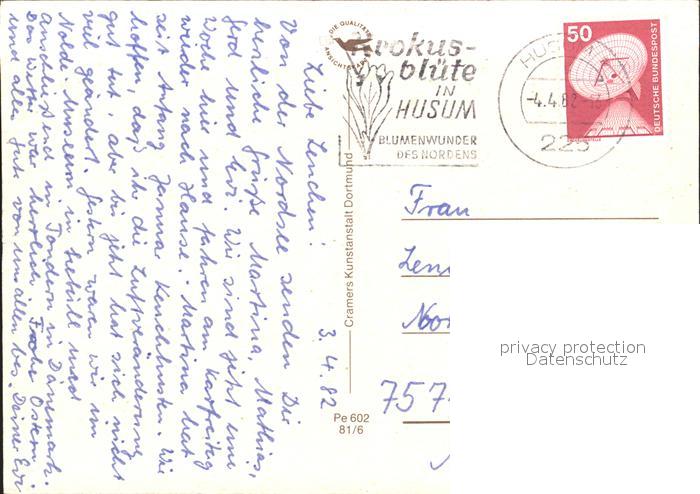 Liebe Lenchen!
3.4.82
Von der Nordsee senden Dir
herzliche Grüße Martina, Mathias,
Gerd und Evi. Wir sind jetzt eine
Woche hier und fahren am Karfreitag
wieder nach Hause. Martina hat
seit Anfang Januar Keuchhusten. Wir
hoffen, daß ihr die Luftveränderung
gut tut, aber bis jetzt hat sich nicht
viel geändert. Gestern waren wir im
Nolde-Museum in Seebüll und
anschließend in Tondern in Dänemark.
Das Wetter war herrlich. Frohe Ostern
und alles Gute von uns allen bes. Deiner Evi
DIE QUALITÄTS
ANSICHTSKARTE
Krokus-
blüte
IN
HUSUM
BLUMENWUNDER
DES NORDENS
HUSUM
-4.4.82
225
50
DEUTSCHE BUNDESPOST
Cramers Kunstanstalt Dortmund
Pe 602
81/6
Frau
757
privacy protection
Datenschutz